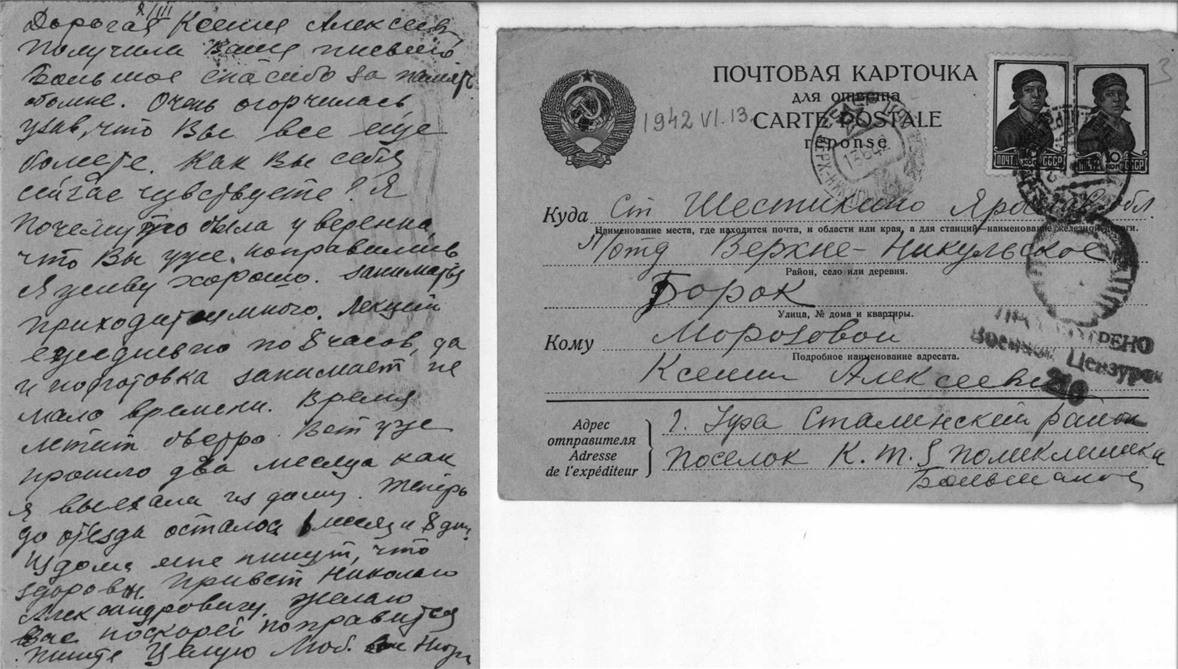 Дорогая Ксения Алексеев.
Получила Ваше письмо
Большое спасибо за память
обомне. Очень огорчилась
узнав, что Вы все еще
болеете. Как Вы себя
сейчас чувствуете? Я
почему то была уверенна
что Вы уже поправились
Я живу хорошо. Заниматься
приходится много. Лекции
ежедневно по 8 часов, да
и подготовка занимает не
мало времени. Время
летит быстро. Вот уже
прошло два месяца как
я выехала из дому. Теперь
до отъезда осталось 1 месяц и 8 дн.
Из дома мне пишут, что
здоровы. Привет Николаю
Александровичу. Желаю
Вас поскорей поправится
Пишите Целую
ПОЧТОВАЯ КАРТОЧКА
для ответа
CARTE POSTALE
réponse
1942 VI.13.
3
ПОЧТА СССР
ПОЧТА 10 СССР
Куда ст Шестихино Яр обл.
Наименование места, где находится почта, и области или края, а для станций—наименование железной дороги.
П/отд Верхне-Никульское
Район, село или деревня.
Борок
Улица, № дома и квартиры.
Кому Морозовой
Подробное наименование адресата.
Ксении Алексеевне
ПРОСМОТРЕНО
Военной Цензурой
210
Адрес отправителя
Adresse de l'expéditeur
г. Уфа Сталинский район
поселок К. т. S поликлиника